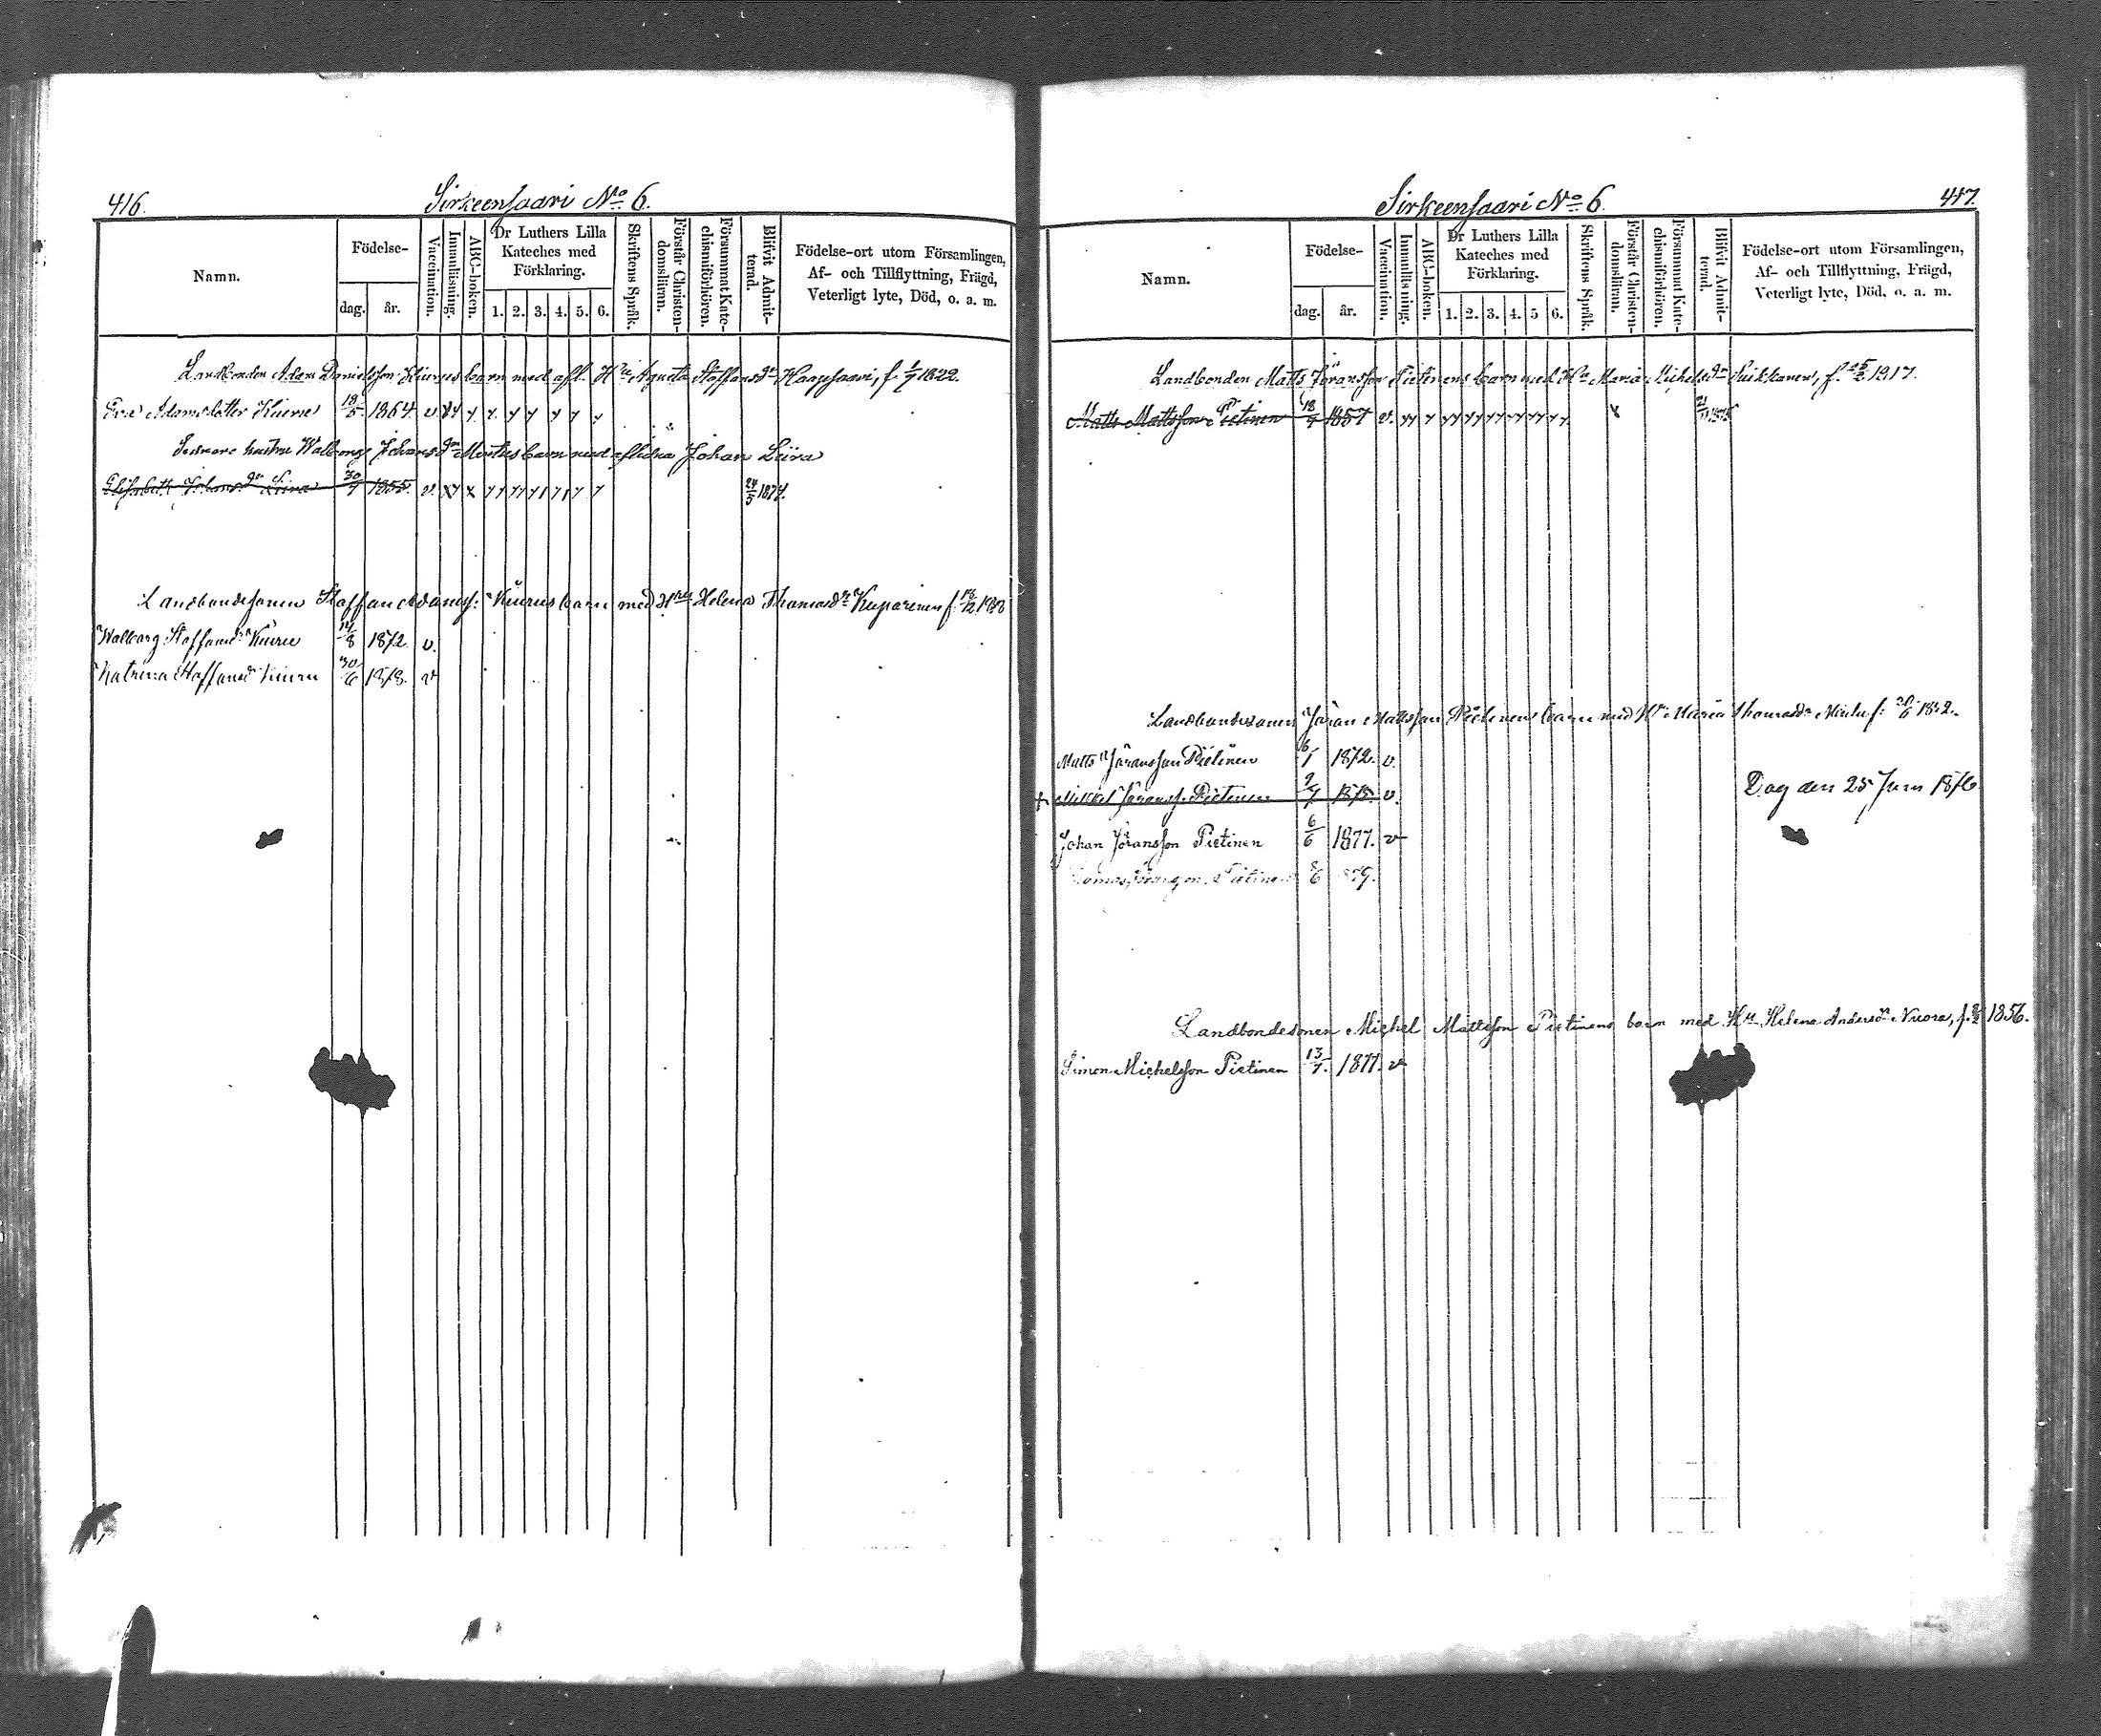 416.
Sirkeensaari No 6.
Namn.
Födelse-
dag.
år.
Vaccination.
Innanläsning.
ABC-boken.
Dr Luthers Lilla
Kateches med
Förklaring.
1. 2. 3. 4. 5. 6.
Skriftens Språk.
Förstår Christen-
domsläran.
Försummat Kate-
chismiförhören.
Blifvit Admit-
terad.
Födelse-ort utom Församlingen,
Af- och Tillflyttning, Frägd,
Veterligt lyte, Död, o. a. m.
Landbonden Adam Danielsson Kiurus barn med afl. Agneta Staffansdr Haapsaari, f. 1822.
Eva Adamsdotter Kiuru 18/5 1864. v.
hustru Walborg Johansdr barn med aflidna Johan Liira
Elisabeth Johansdr Liira 30/7 1855. v. 24/5 1874.
Landbondesonen Staffan Adamss: Kiurus barn med Helena Thomasdr Kuparinen f.
Walborg Staffansdr Kiuru 14/8 1872. v.
Katrina Staffansdr Kiuru 30/6 1878. v
417.
Sirkeensaari No 6.
Namn.
Födelse-
dag.
år.
Vaccination.
Innanläsning.
ABC-boken.
Dr Luthers Lilla
Kateches med
Förklaring.
1. 2. 3. 4. 5 6.
Skriftens Språk.
Förstår Christen-
domsläran.
Försummat Kate-
chismiförhören.
Blifvit Admit-
terad.
Födelse-ort utom Församlingen,
Af- och Tillflyttning, Frägd,
Veterligt lyte, Död, o. a. m.
Landbonden Matts Jöransson Pietinens barn med Maria Michelsdr Suikkanen, f. 1817.
Matts Mattsson Pietinen 18/7 1857 v.
Landbondesonen Jöran Mattsson Pietinens barn med Maria Thomasdr f: 1852.
Matts Jöransson Pietinen 6/1 1872. v.
Mikkel Jöranss. Pietinen 2/7 1875. v. Dog den 25 Juni 1876
Johan Jöransson Pietinen 6/6 1877. v
Pietinen
Landbondesonen Michel Mattsson Pietinens barn med Helena Andersdr Nuora, f. 1856.
Simon Michelsson Pietinen 13/7. 1877. v